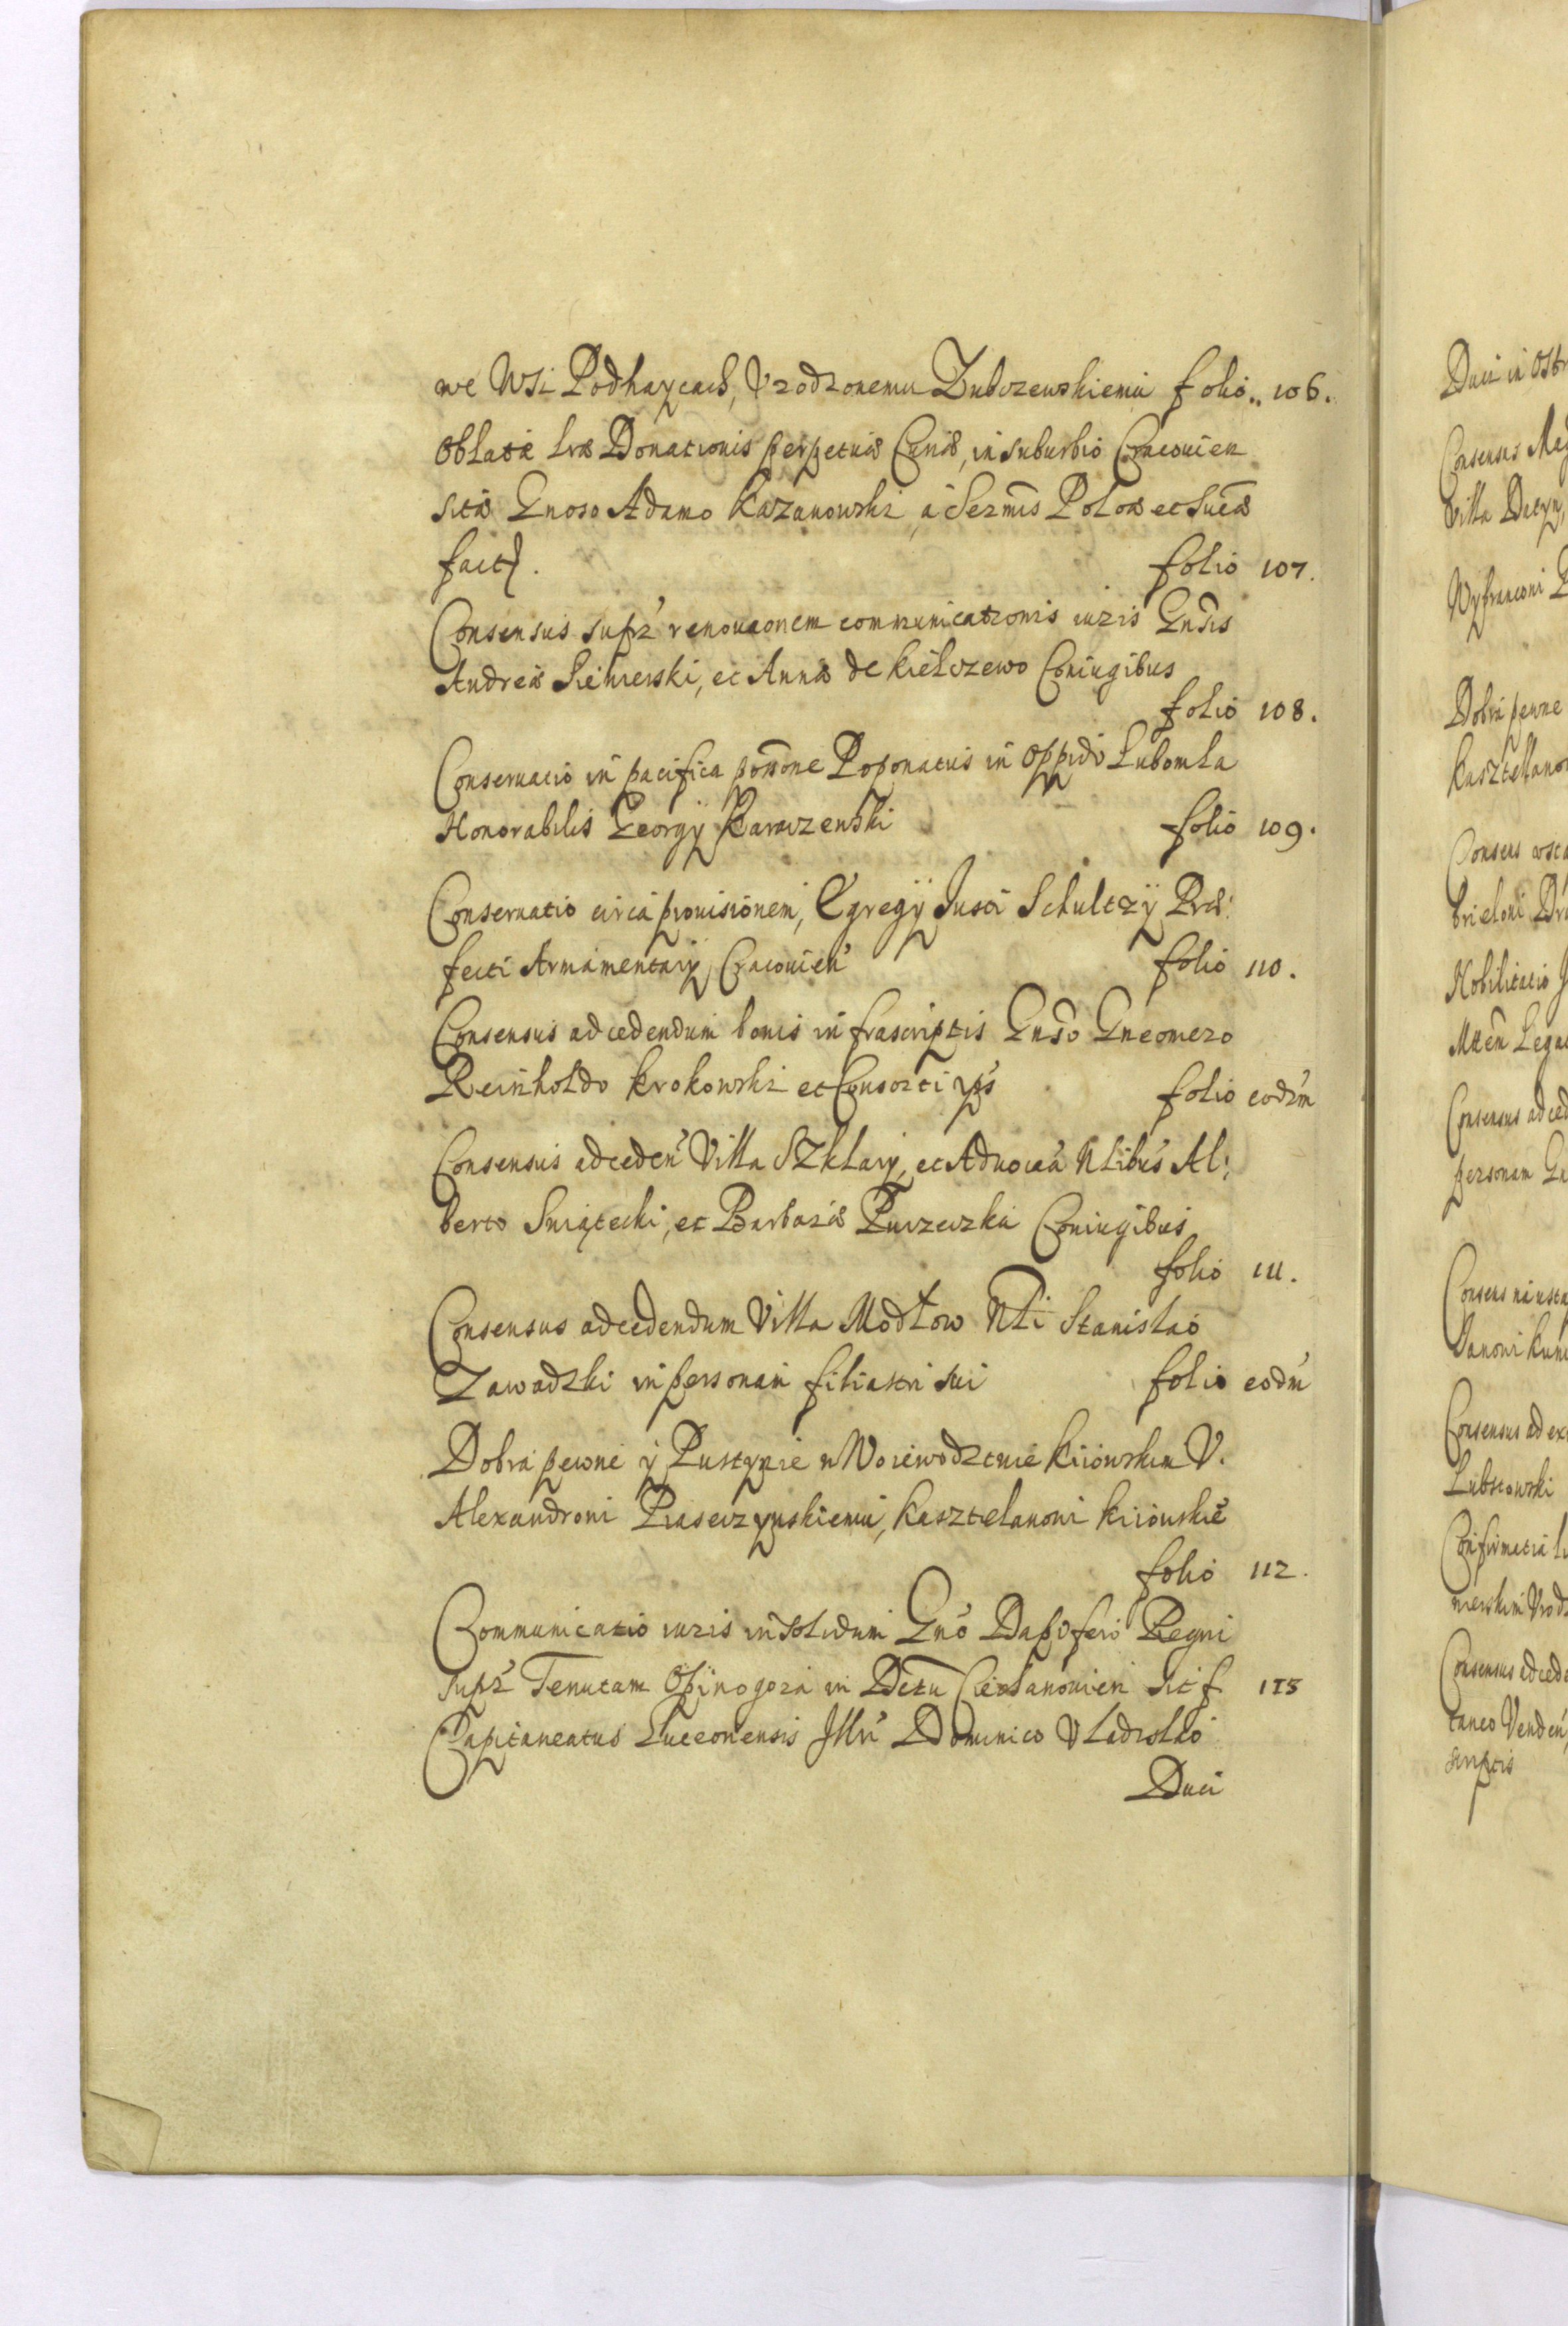 we Wsi Podhaycach, Vrodzonemu Zubczewskiemu folio 106.
Oblata lræ Donationis perpetuæ Curiæ, in suburbio Cracouien
sitæ Gnoso Adamo Kazanowski a Sermis Poloæ et Sueæ
fact.
folio 107.
Consensus supr renouaonem communicationis iuris Gnsis
Andreæ Sieniewski, et Annæ de Kiełczewo Coniugibus
folio 108.
Conseruatio in pacifica possone Poponatus in Oppido Lubomla
Honorabilis Georgij Karaczewski folio 109.
Conseruatio circa prouisionem, Egregij Justi Schultzij Præ:
fecti Armamentarij Cracouien folio 110.
Consensus ad cedendum bonis infrascriptis Gnso Gneomero
Reinholdo Krokowski et Consorti ips folio eodm
Consensus ad ceden Villa Szklary, et Aduoca Nlibus Al:
berto Swiątecki, et Barbaræ Coniugibus
folio 111.
Consensus ad cedendum Villa Modłow Nli Stanislao
Zawadzki in personam filiastri sui folio eodm
Dobra pewne y Pustynie w Woiewodztwie Kiiowskim V.
Alexandroni Piaseczynskiemu, Kasztelanoni Kiiouskie
folio 112.
Communicatio iuris in solidum Gno Dapifero Regni
supr Tenutam Opinogora in Dctu Ciechanouien sit 115
Capitaneatus Luceoriensis Jllri Dominico Vladislao
Duci
Duci in Ostr
Consensus Mag
Villa Datyn,
Wybranconi
Dobra pewne
Kasztellanon
Consens wsta
brieloni
Nobilitatio J
Consensus ad ced
personam
Consens na usta
Consensus ad ex
Consensus ad cede
taneo Venden
scriptis